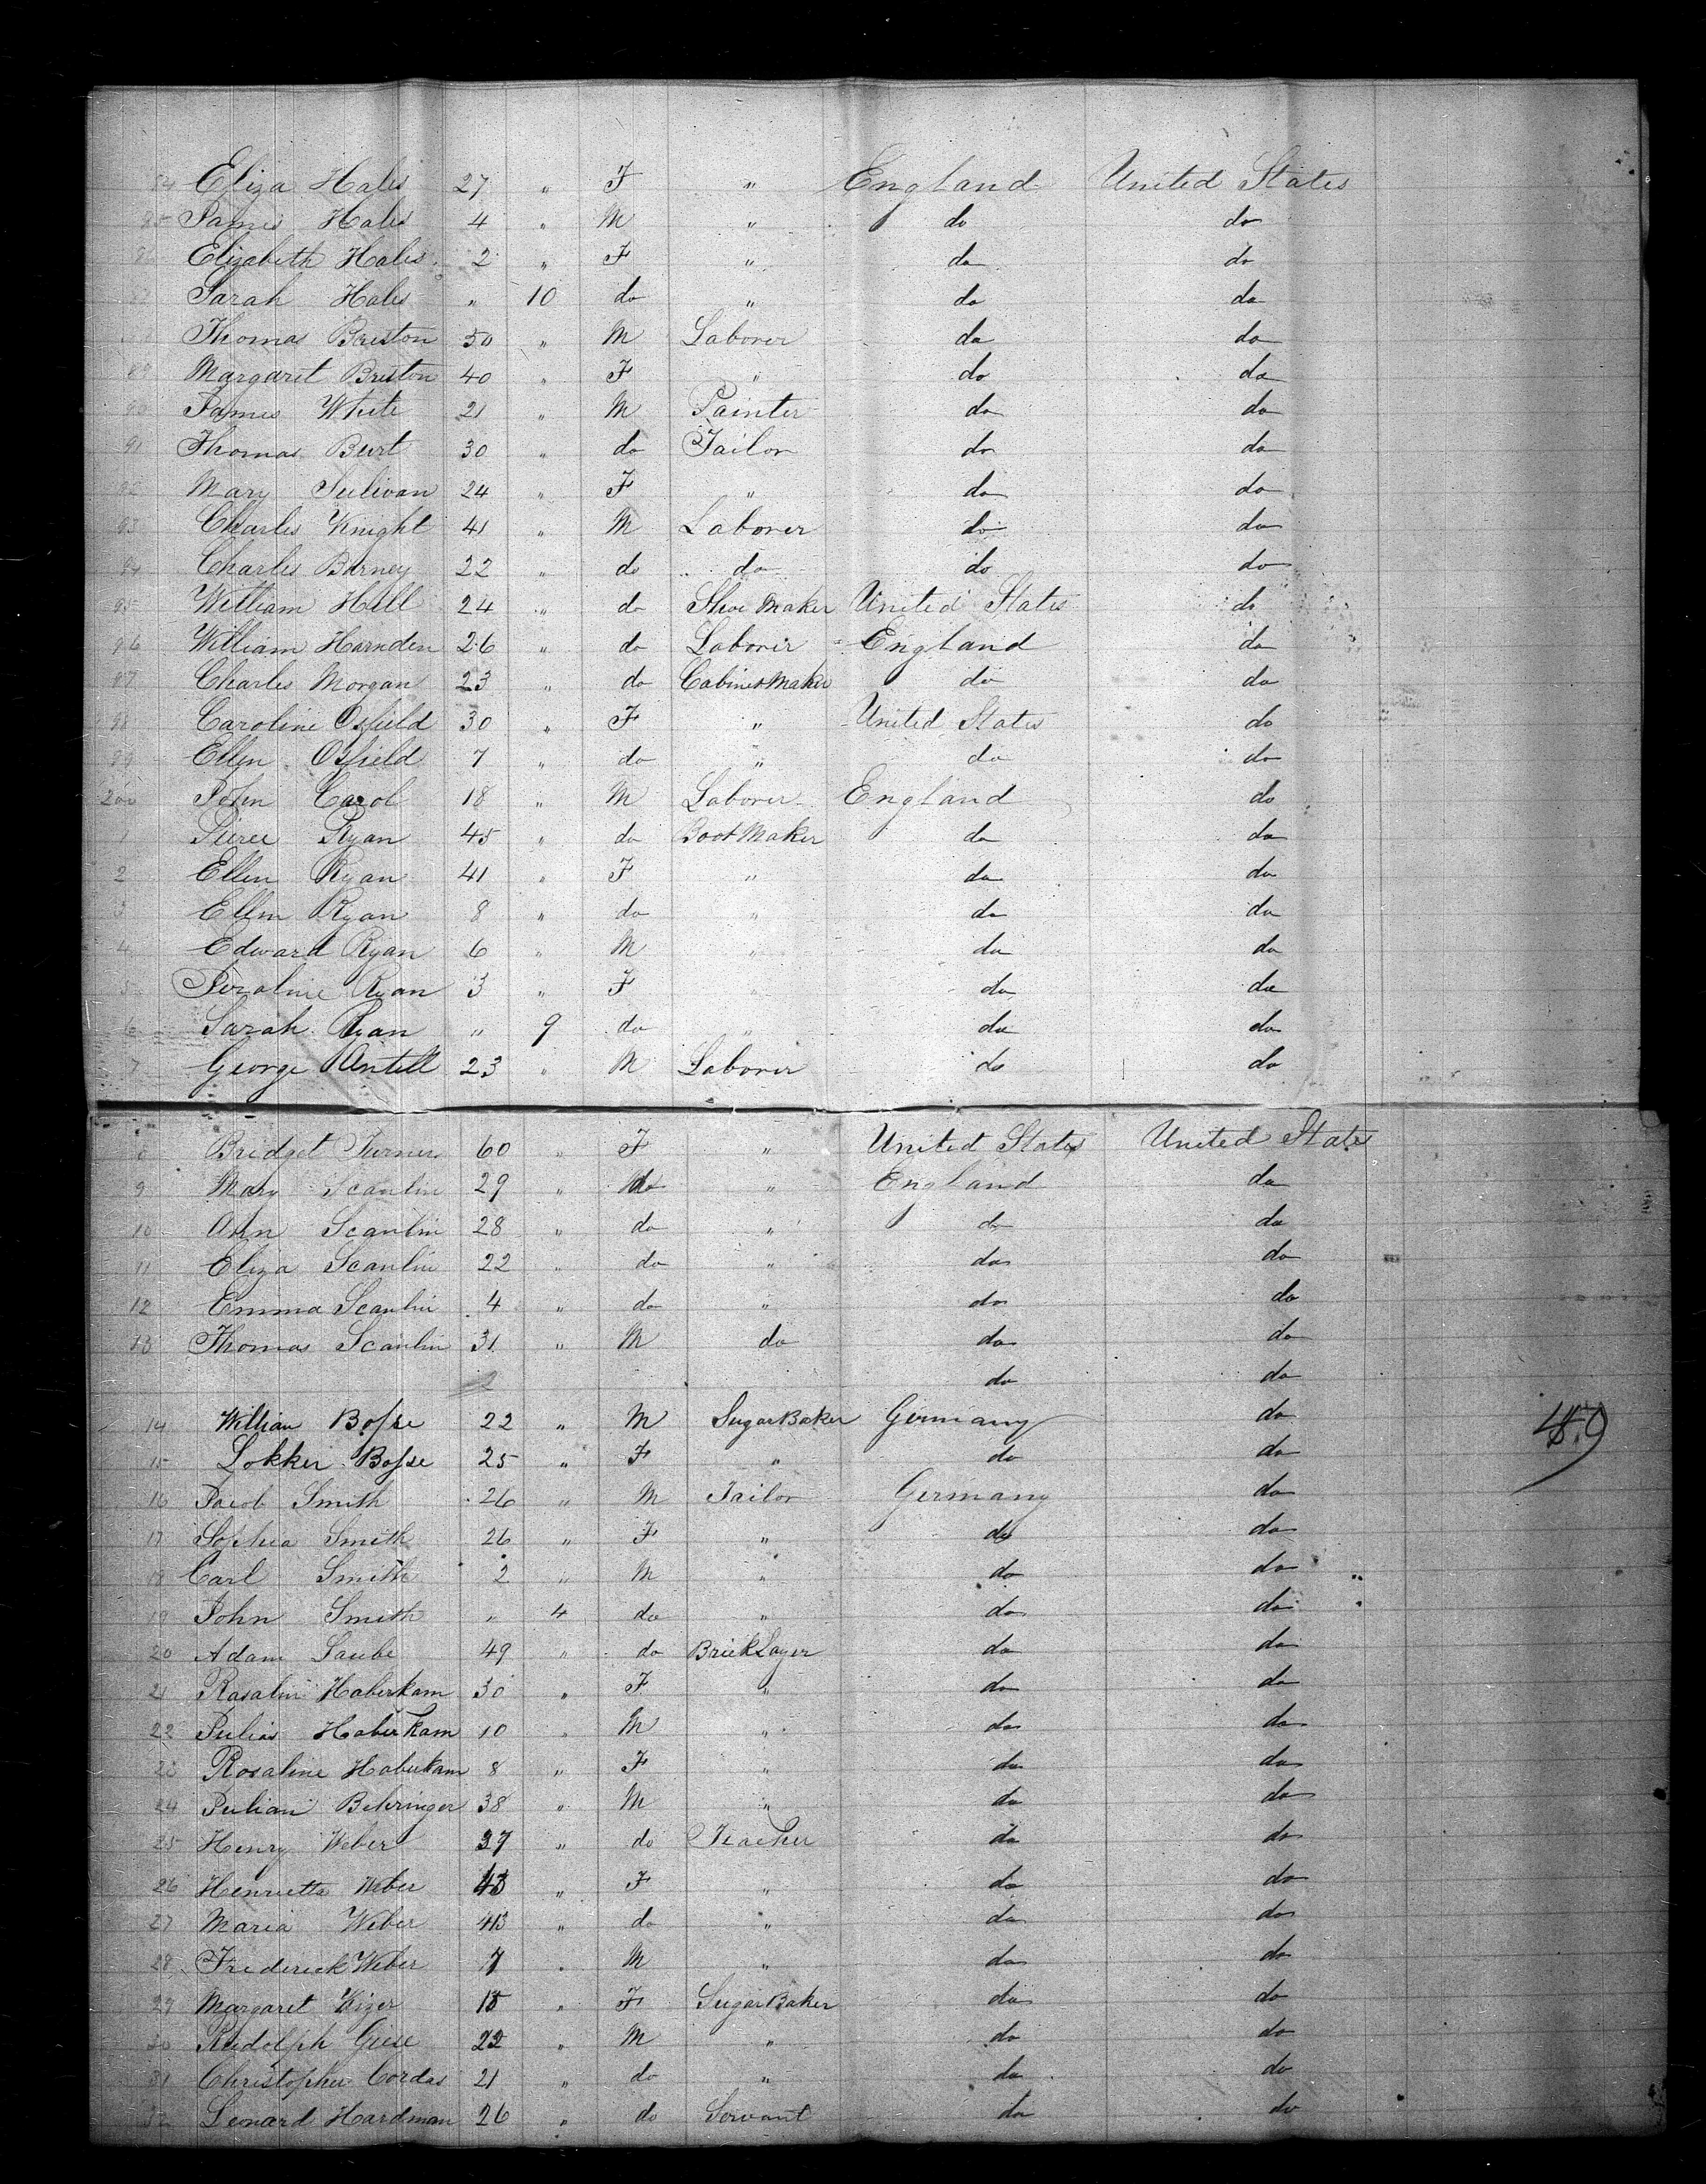 84 Eliza Hales 27 " F " England United States
85 James Hales 4 " M " do do
86 Elizabeth Hales 2 " F " do do
87 Sarah Hales " 10 do " do do
Thomas Briston 50 " M Laborer do do
89 Margaret Briston 40 " F " do do
90 James White 21 " M Painter do do
91 Thomas Burt 30 " do Tailor do do
92 Mary Sulivan 24 " F " do do
93 Charles Knight 41 " M Laborer do do
94 Charles Barney 22 " do do do do
95 William Hill 24 " do Shoe Maker United States do
96 William Harnden 26 " do Laborer England do
97 Charles Morgan 23 " do Cabinet Maker do do
98 Caroline Osfield 30 " F " United States do
99 Ellen Osfield 7 " do " do do
200 John Carol 18 " M Laborer England do
1 Pierce Ryan 45 " do Boot Maker do do
2 Ellen Ryan 41 " F " do do
3 Ellen Ryan 8 " do " do do
4 Edward Ryan 6 " M " do do
5 Ryan 3 " F " do do
6 Sarah Ryan " 9 do " do do
7 George Antill 23 " M Laborer do do
8 Bridget Turner 60 " F " United States United States
9 Mary Scanlin 29 " do " England do
10 Ann Scanlin 28 " do " do do
11 Eliza Scanlin 22 " do " do do
12 Emma Scanlin 4 " do " do do
13 Thomas Scanlin 31 " M do do do
do do
14 William Bosse 22 " M Sugar Baker Germany do
15 Lokker Bosse 25 " F " do do
16 Jacob Smith 26 " M Tailor Germany do
17 Sophia Smith 26 " F " do do
18 Carl Smith 2 " M " do do
19 John Smith " 4 do " do do
20 Adam Laube 49 " do Brick Layer do do
21 Rasalin Haberkam 30 " F " do do
22 Julius Haberkam 10 " M " do do
23 Rosaline Haberkam 8 " F " do do
24 Julian Behringer 38 " M " do do
25 Henry Weber 37 " do Teacher do do
26 Henrietta Weber 43 " F " do do
27 Maria Weber " do " do do
28 Frederick Weber 7 " M " do do
29 Margaret Kizer 18 " F Sugar Baker do do
30 Rudolph Giese 22 " M " do do
31 Christopher Cordas 21 " do " do do
32 Leonard Hardman 26 " do Servant do do